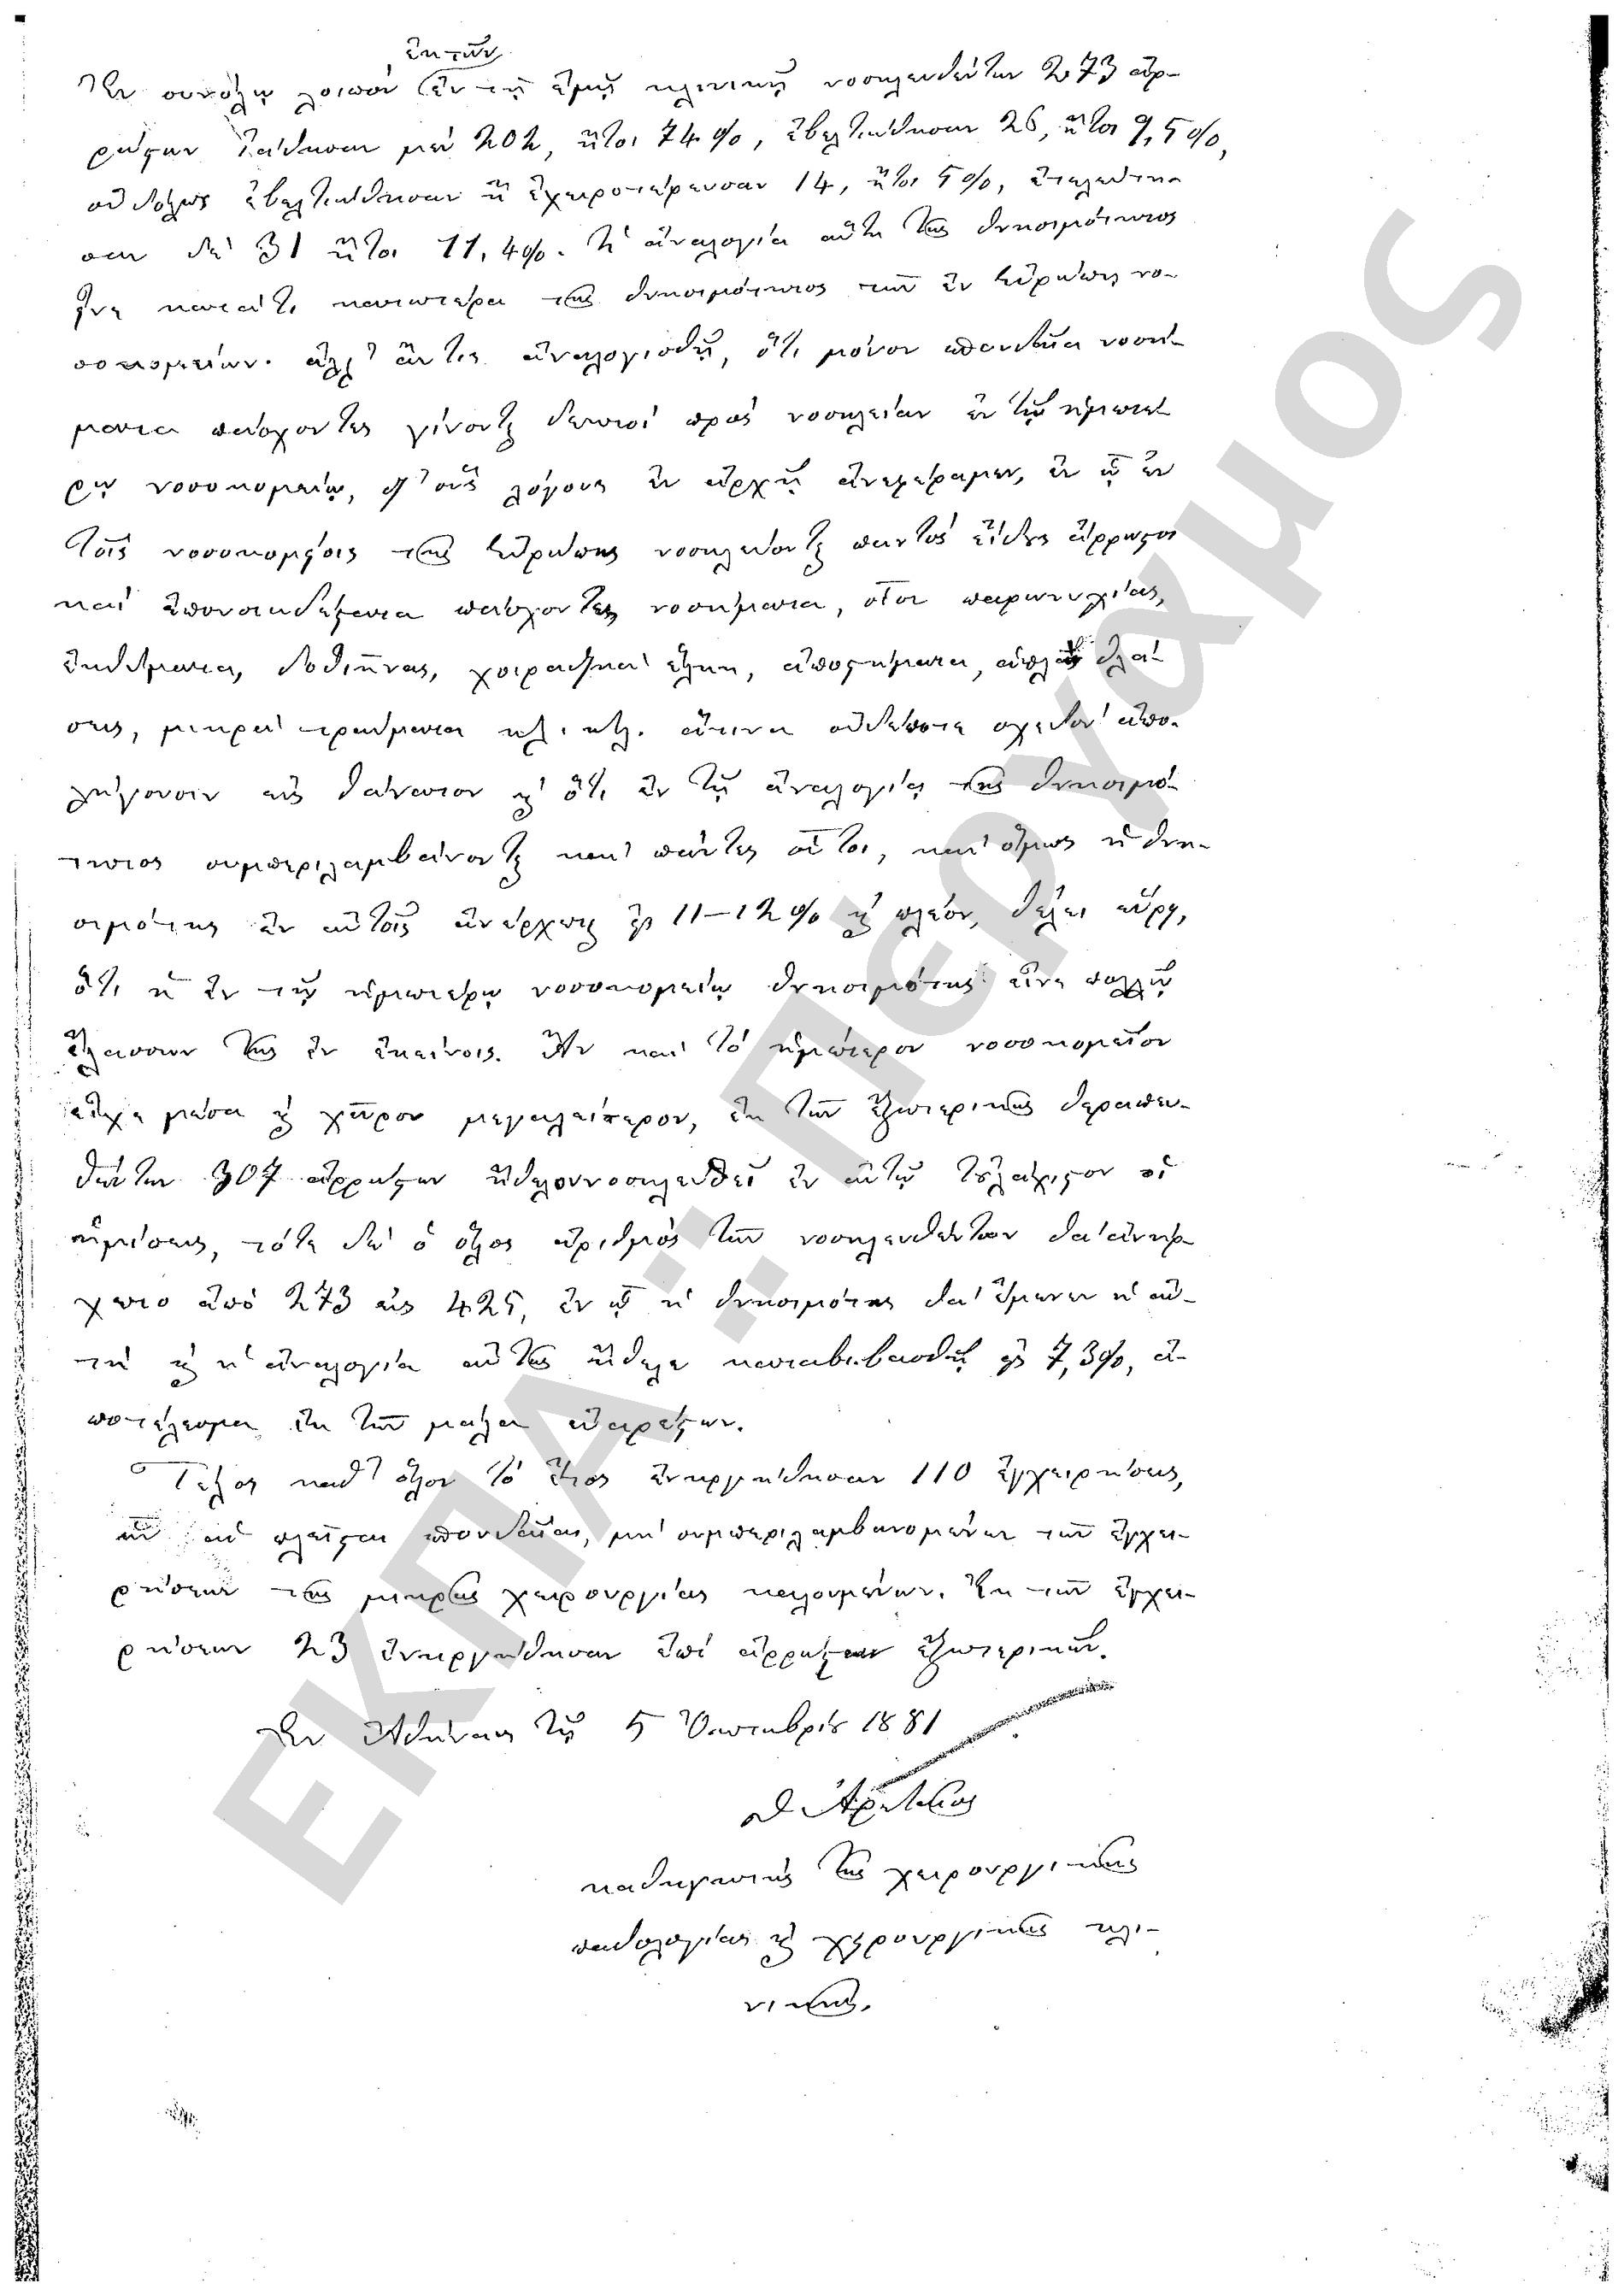 ἐκ τῶν
Ἐν συνόλῳ λοιπὸν ἐν τῇ ἐμῇ κλινικῇ νοσηλευθέντων 273 ἀρ-
ρώστων ἰάθησαν μὲν 202, ἤτοι 74 %, ἐβελτιώθησαν 26, ἤτοι 9,5 %,
οὐδόλως ἐβελτιώθησαν ἢ ἐχειροτέρευσαν 14, ἤτοι 5 %, ἐτελεύτη-
σαν δὲ 31 ἤτοι 11,4 %. Ἡ ἀναλογία αὕτη τῆς θνησιμότητος
εἶνε κατά τι κατωτέρα τῆς θνησιμότητος τῶν ἐν Εὐρώπῃ νο-
σοκομείων. ἀλλ' ἄν τις ἀναλογισθῇ, ὅτι μόνον σπουδαῖα νοσή-
ματα πάσχοντες γίνονται δεκτοὶ πρὸς νοσηλείαν ἐν τῷ ἡμετέ-
ρῳ νοσοκομείῳ, δι' οὓς λόγους ἐν ἀρχῇ ἀνεφέραμεν, ἐν ᾧ ἐν
τοῖς νοσοκομείοις τῆς Εὐρώπης νοσηλεύονται παντὸς εἴδους ἄρρωστοι
καὶ ἐπουσιωδέστατα πάσχοντες νοσήματα, οἷον παρωνυχίας,
ἐκθύματα, δοθιῆνας, χοιραδικὰ ἕλκη, ἀποστήματα, ἁπλᾶς θλά-
σεις, μικρὰ τραύματα κλ. κλ. ἅτινα οὐδέποτε σχεδὸν ἀπο-
λήγουσιν εἰς θάνατον καὶ ὅτι ἐν τῇ ἀναλογίᾳ τῆς θνησιμό-
τητος συμπεριλαμβάνονται καὶ πάντες οὗτοι, καὶ ὅμως ἡ θνη-
σιμότης ἐν αὐτοῖς ἀνέρχεται εἰς 11–12 % καὶ πλέον, θέλει εὕρῃ,
ὅτι ἡ ἐν τῷ ἡμετέρῳ νοσοκομείῳ θνησιμότης εἶνε πολλῷ
ἐλάσσων τῆς ἐν ἐκείνοις. Ἂν καὶ τὸ ἡμέτερον νοσοκομεῖον
εἶχε μέσα καὶ χῶρον μεγαλείτερον, ἐκ τῶν ἐξωτερικῶς θεραπευ-
θέντων 307 ἀρρώστων ἤθελον νοσηλευθεῖ ἐν αὐτῷ τοὐλάχιστον οἱ
ἡμίσεις, τότε δὲ ὁ ὅλος ἀριθμὸς τῶν νοσηλευθέντων θὰ ἀνήρ-
χετο ἀπὸ 273 εἰς 425, ἐν ᾧ ἡ θνησιμότης θὰ ἔμενεν ἡ αὐ-
τὴ καὶ ἡ ἀναλογία αὐτῆς ἤθελε καταβιβασθῇ εἰς 7,3 %, ἀ-
ποτέλεσμα ἐκ τῶν μάλα εὐαρέστων.
Τέλος καθ' ὅλον τὸ ἔτος ἐνηργήθησαν 110 ἐγχειρήσεις,
ὧν αἱ πλεῖσται σπουδαῖαι, μὴ συμπεριλαμβανομένων τῶν ἐγχει-
ρήσεων τῆς μικρᾶς χειρουργίας καλουμένων. Ἐκ τῶν ἐγχει-
ρήσεων 23 ἐνηργήθησαν ἐπὶ ἀρρώστων ἐξωτερικῶν.
Ἐν Ἀθήναις τῇ 5 Ὀκτωβρίου 1881
Θ. Ἀρεταῖος
καθηγητὴς τῆς χειρουργικῆς
παθολογίας καὶ χειρουργικῆς κλι-
νικῆς.
ΕΚΠΑ: Πέργαμος